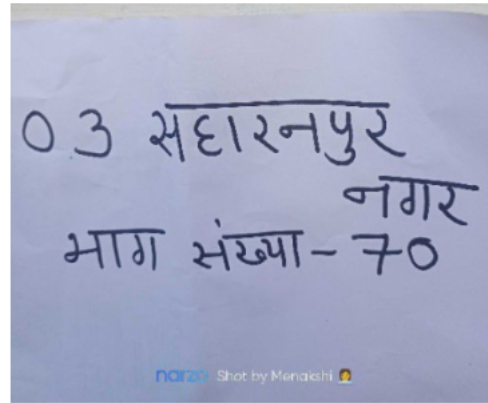 03 सहारनपुर
नगर
भाग संख्या - 70
narzo Shot by Menakshi 👩